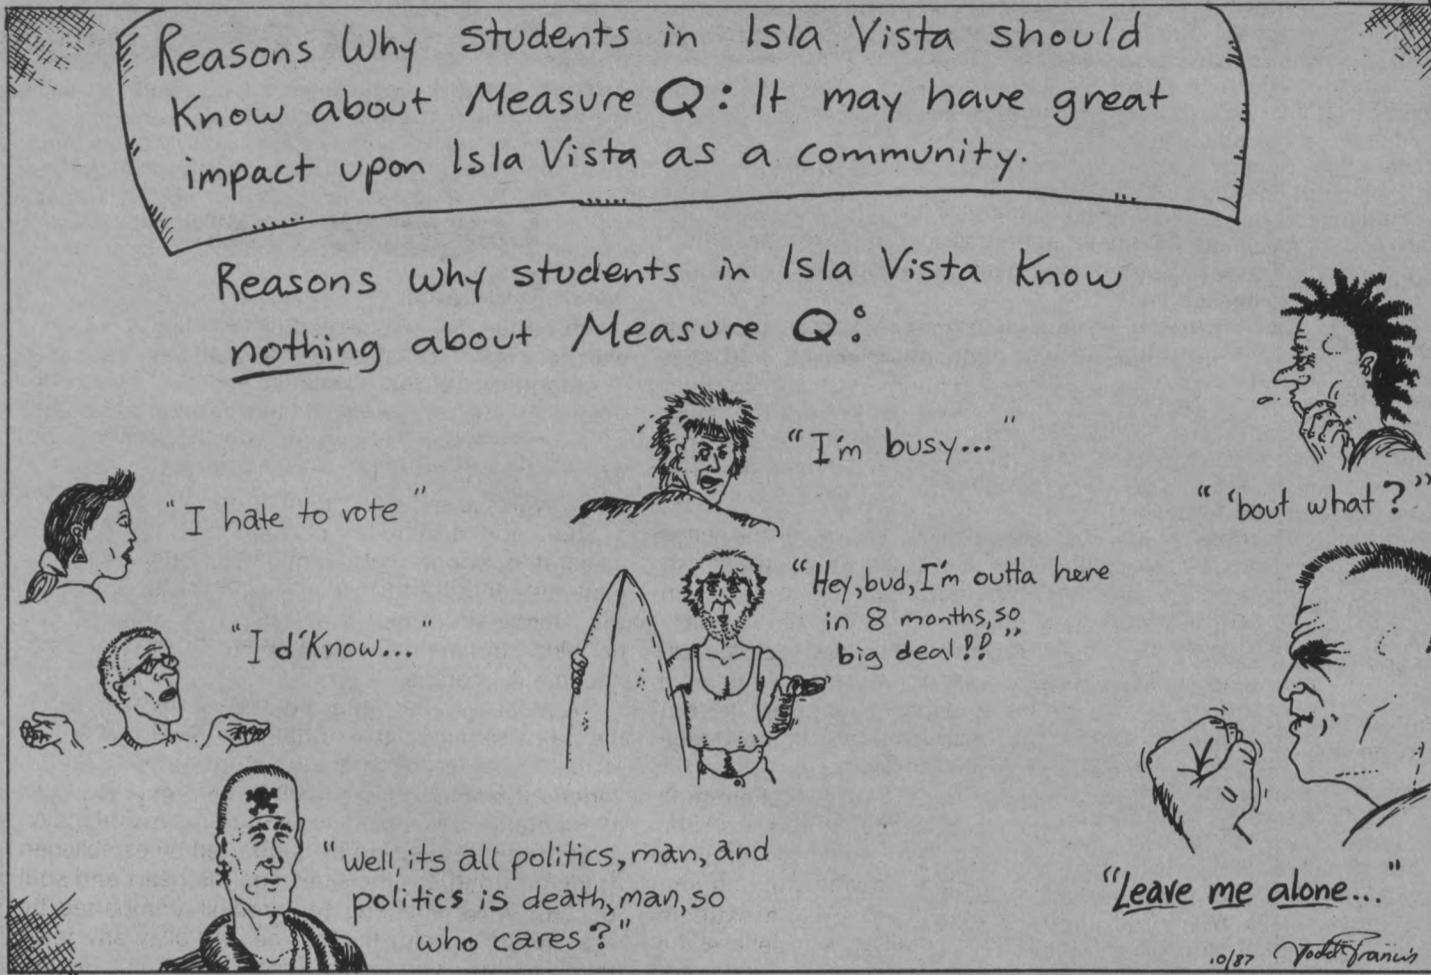 Reasons Why students in Isla Vista should
Know about Measure Q: It may have great
impact upon Isla Vista as a community.
Reasons why students in Isla Vista Know
nothing about Measure Q:
"I'm busy..."
"'bout what?"
"I hate to vote"
"Hey, bud, I'm outta here
in 8 months, so
big deal!!"
"I d'Know..."
"well, its all politics, man, and
politics is death, man, so
who cares?"
"Leave me alone..."
10/87 Todd Francis